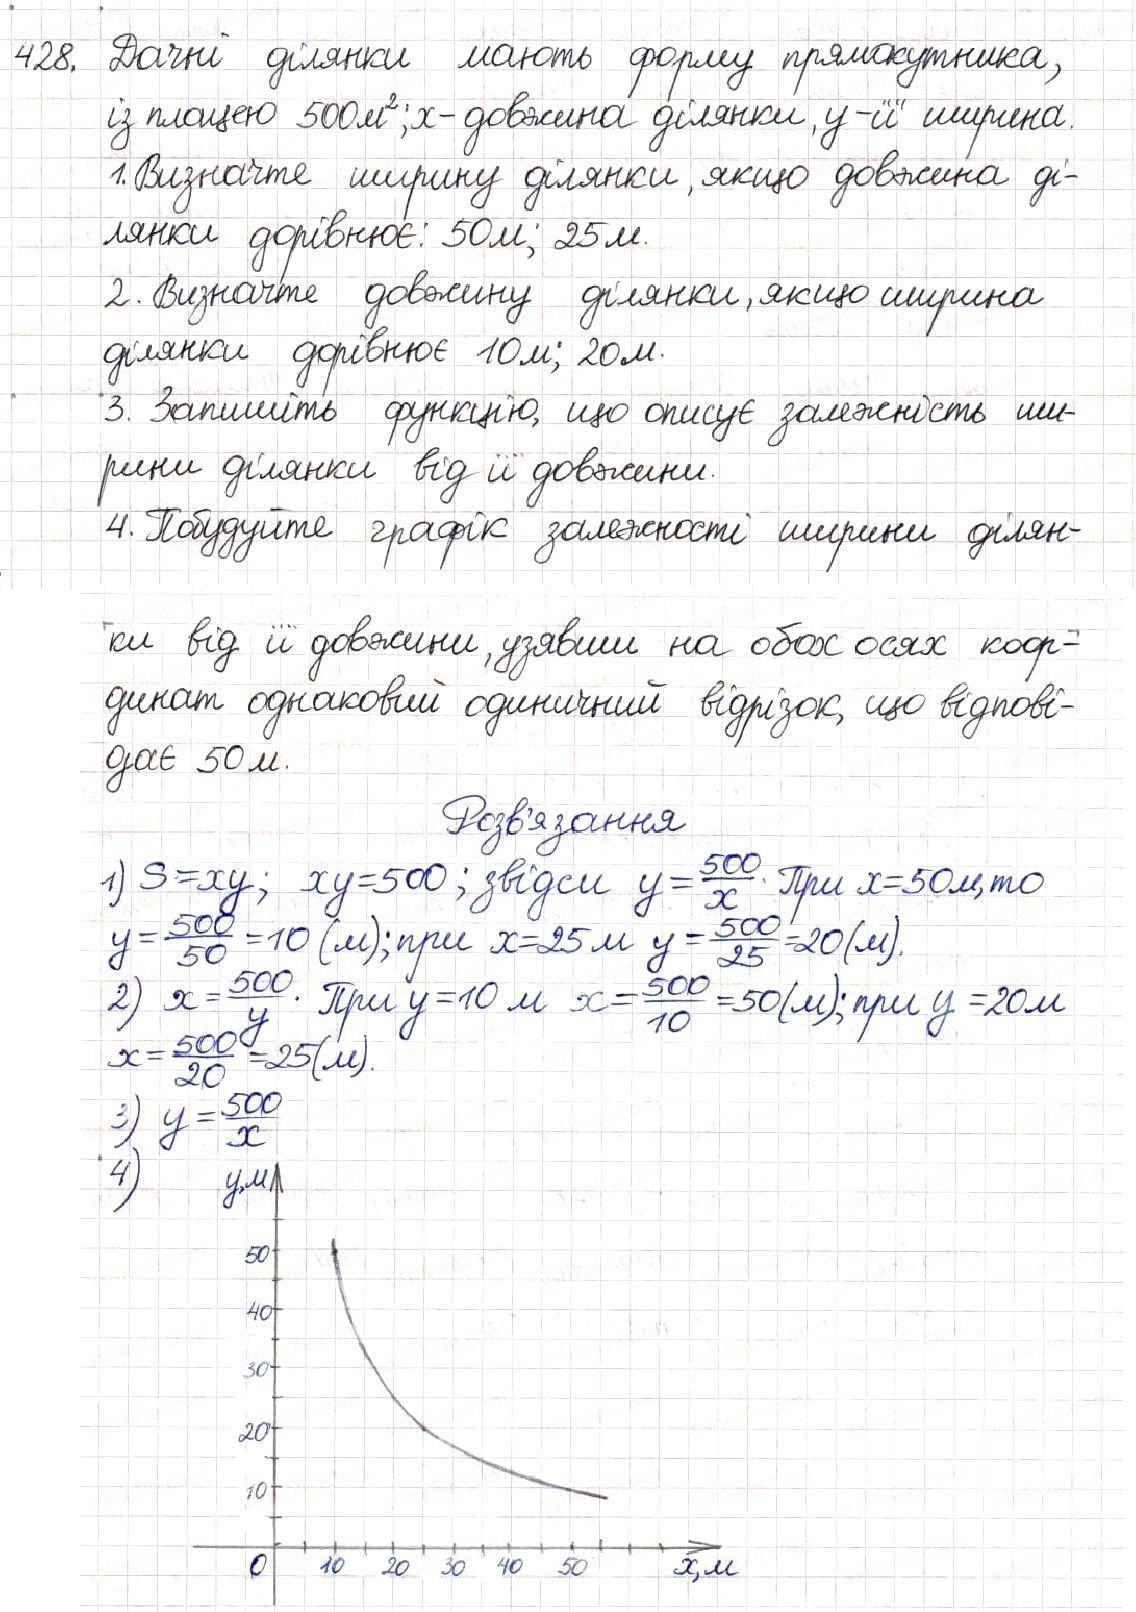 428. Дачні ділянки мають форму прямокутника,
із площею 500м²; x - довжина ділянки, y - її ширина.
1. Визначте ширину ділянки, якщо довжина ді-
лянки дорівнює: 50м; 25м.
2. Визначте довжину ділянки, якщо ширина
ділянки дорівнює 10м; 20м.
3. Запишіть функцію, що описує залежність ши-
рини ділянки від її довжини.
4. Побудуйте графік залежності ширини ділян-
ки від її довжини, узявши на обох осях коор-
динат однаковий одиничний відрізок, що відпові-
дає 50м.
Розв'язання
1) S=xy; xy=500; звідси y=500/x. При x=50м, то
y=500/50=10(м); при x=25м y=500/25=20(м).
2) x=500/y. При y=10м x=500/10=50(м); при y=20м
x=500/20=25(м).
3) y=500/x
4) y,м
50
40
30
20
10
0 10 20 30 40 50 x,м